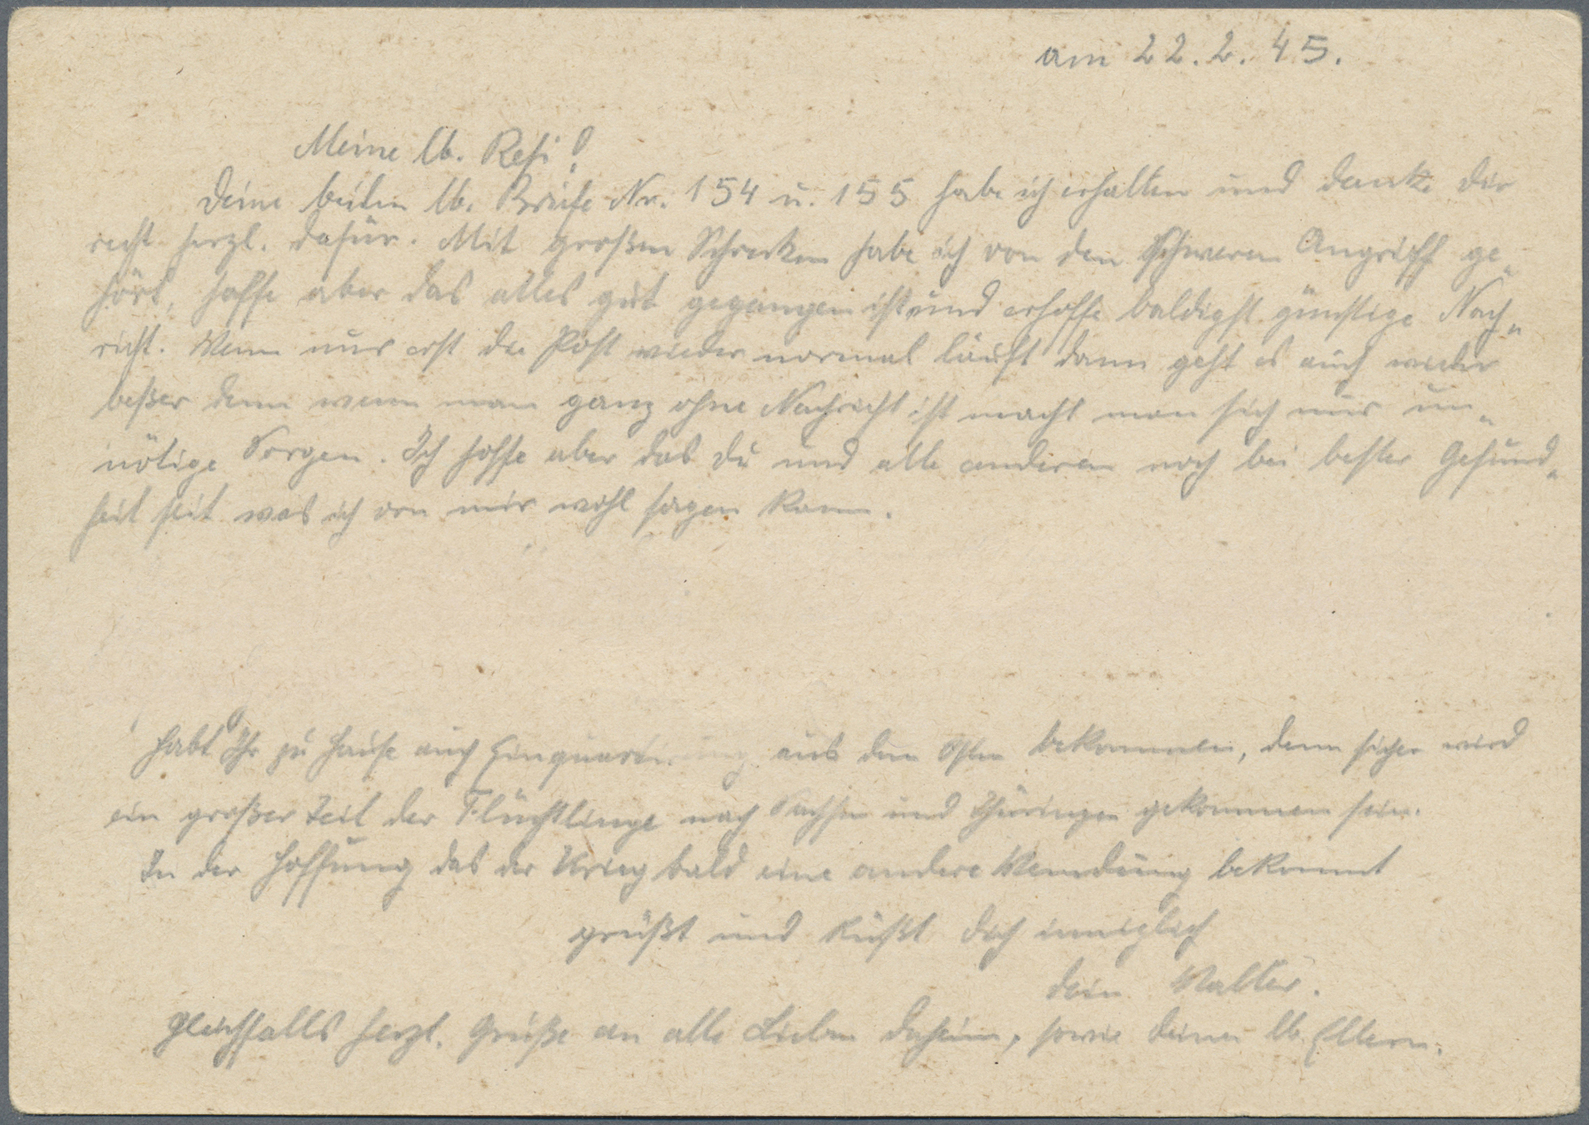 am 22.2.45.
Meine lb. Resi!
Deine beiden lb. Briefe Nr. 154 u. 155 habe ich erhalten und danke Dir
recht herzl. dafür. Mit großem Schrecken habe ich von den schweren Angriff ge„
hört, hoffe aber das alles gut gegangen ist und erhoffe baldigst günstige Nach„
richt. Wenn nur erst die Post wieder normal läuft dann geht es auch wieder
beßer denn wenn man ganz ohne Nachricht ist macht man sich nur un„
nötige Sorgen. Ich hoffe aber das Du und alle anderen noch bei bester Gesund„
heit seit was ich von mir wohl sagen kann.
Habt Ihr zu Hause auch Einquartierung aus dem Osten bekommen, denn sicher wird
ein großer Teil der Flüchtlinge nach Sachsen und Thüringen gekommen sein.
In der Hoffung das der Krieg bald eine andere Wendung bekommt
grüßt und küßt Dich inniglich
Dein Walter.
Gleichfalls herzl. Grüße an alle Lieben daheim, sowie Deinen lb. Eltern.